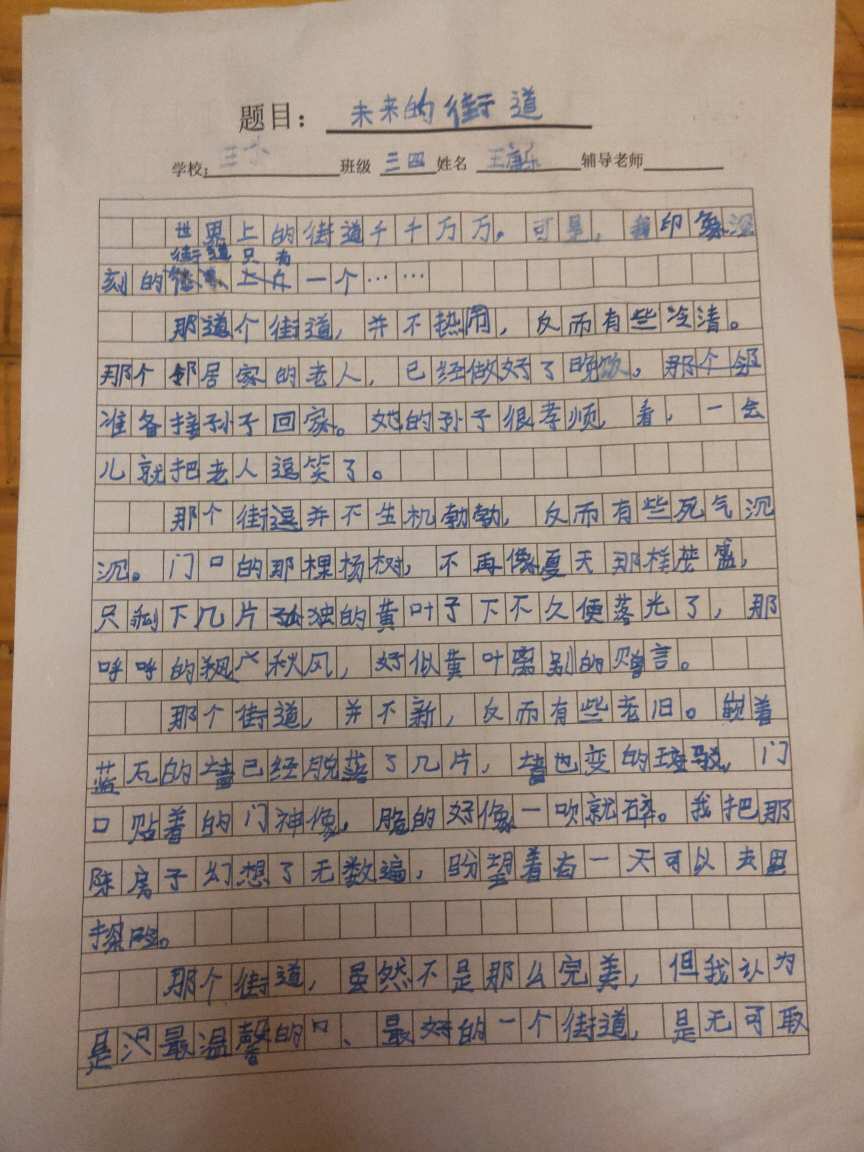 题目：未来的街道
学校： 班级 三四 姓名 王 辅导老师
世界上的街道千千万万。可是，我印象深
街道只有
刻的一个……
那道个街道，并不热闹，反而有些冷清。
那个邻居家的老人，已经做好了晚饭。那个邻
准备接孙子回家。她的孙子很孝顺，看，一会
儿就把老人逗笑了。
那个街道并不生机勃勃，反而有些死气沉
沉。门口的那棵杨树，不再像夏天那样茂盛，
只剩下几片孤独的黄叶子下不久便落光了，那
呼呼的秋风，好似黄叶离别的赠言。
那个街道，并不新，反而有些老旧。嵌着
蓝瓦的墙已经脱落了几片，墙也变的斑驳，门
口贴着的门神像，脆的好像一吹就碎。我把那
房子幻想了无数遍，盼望着有一天可以去里
探险。
那个街道，虽然不是那么完美，但我认为
是最温馨的、最好的一个街道，是无可取